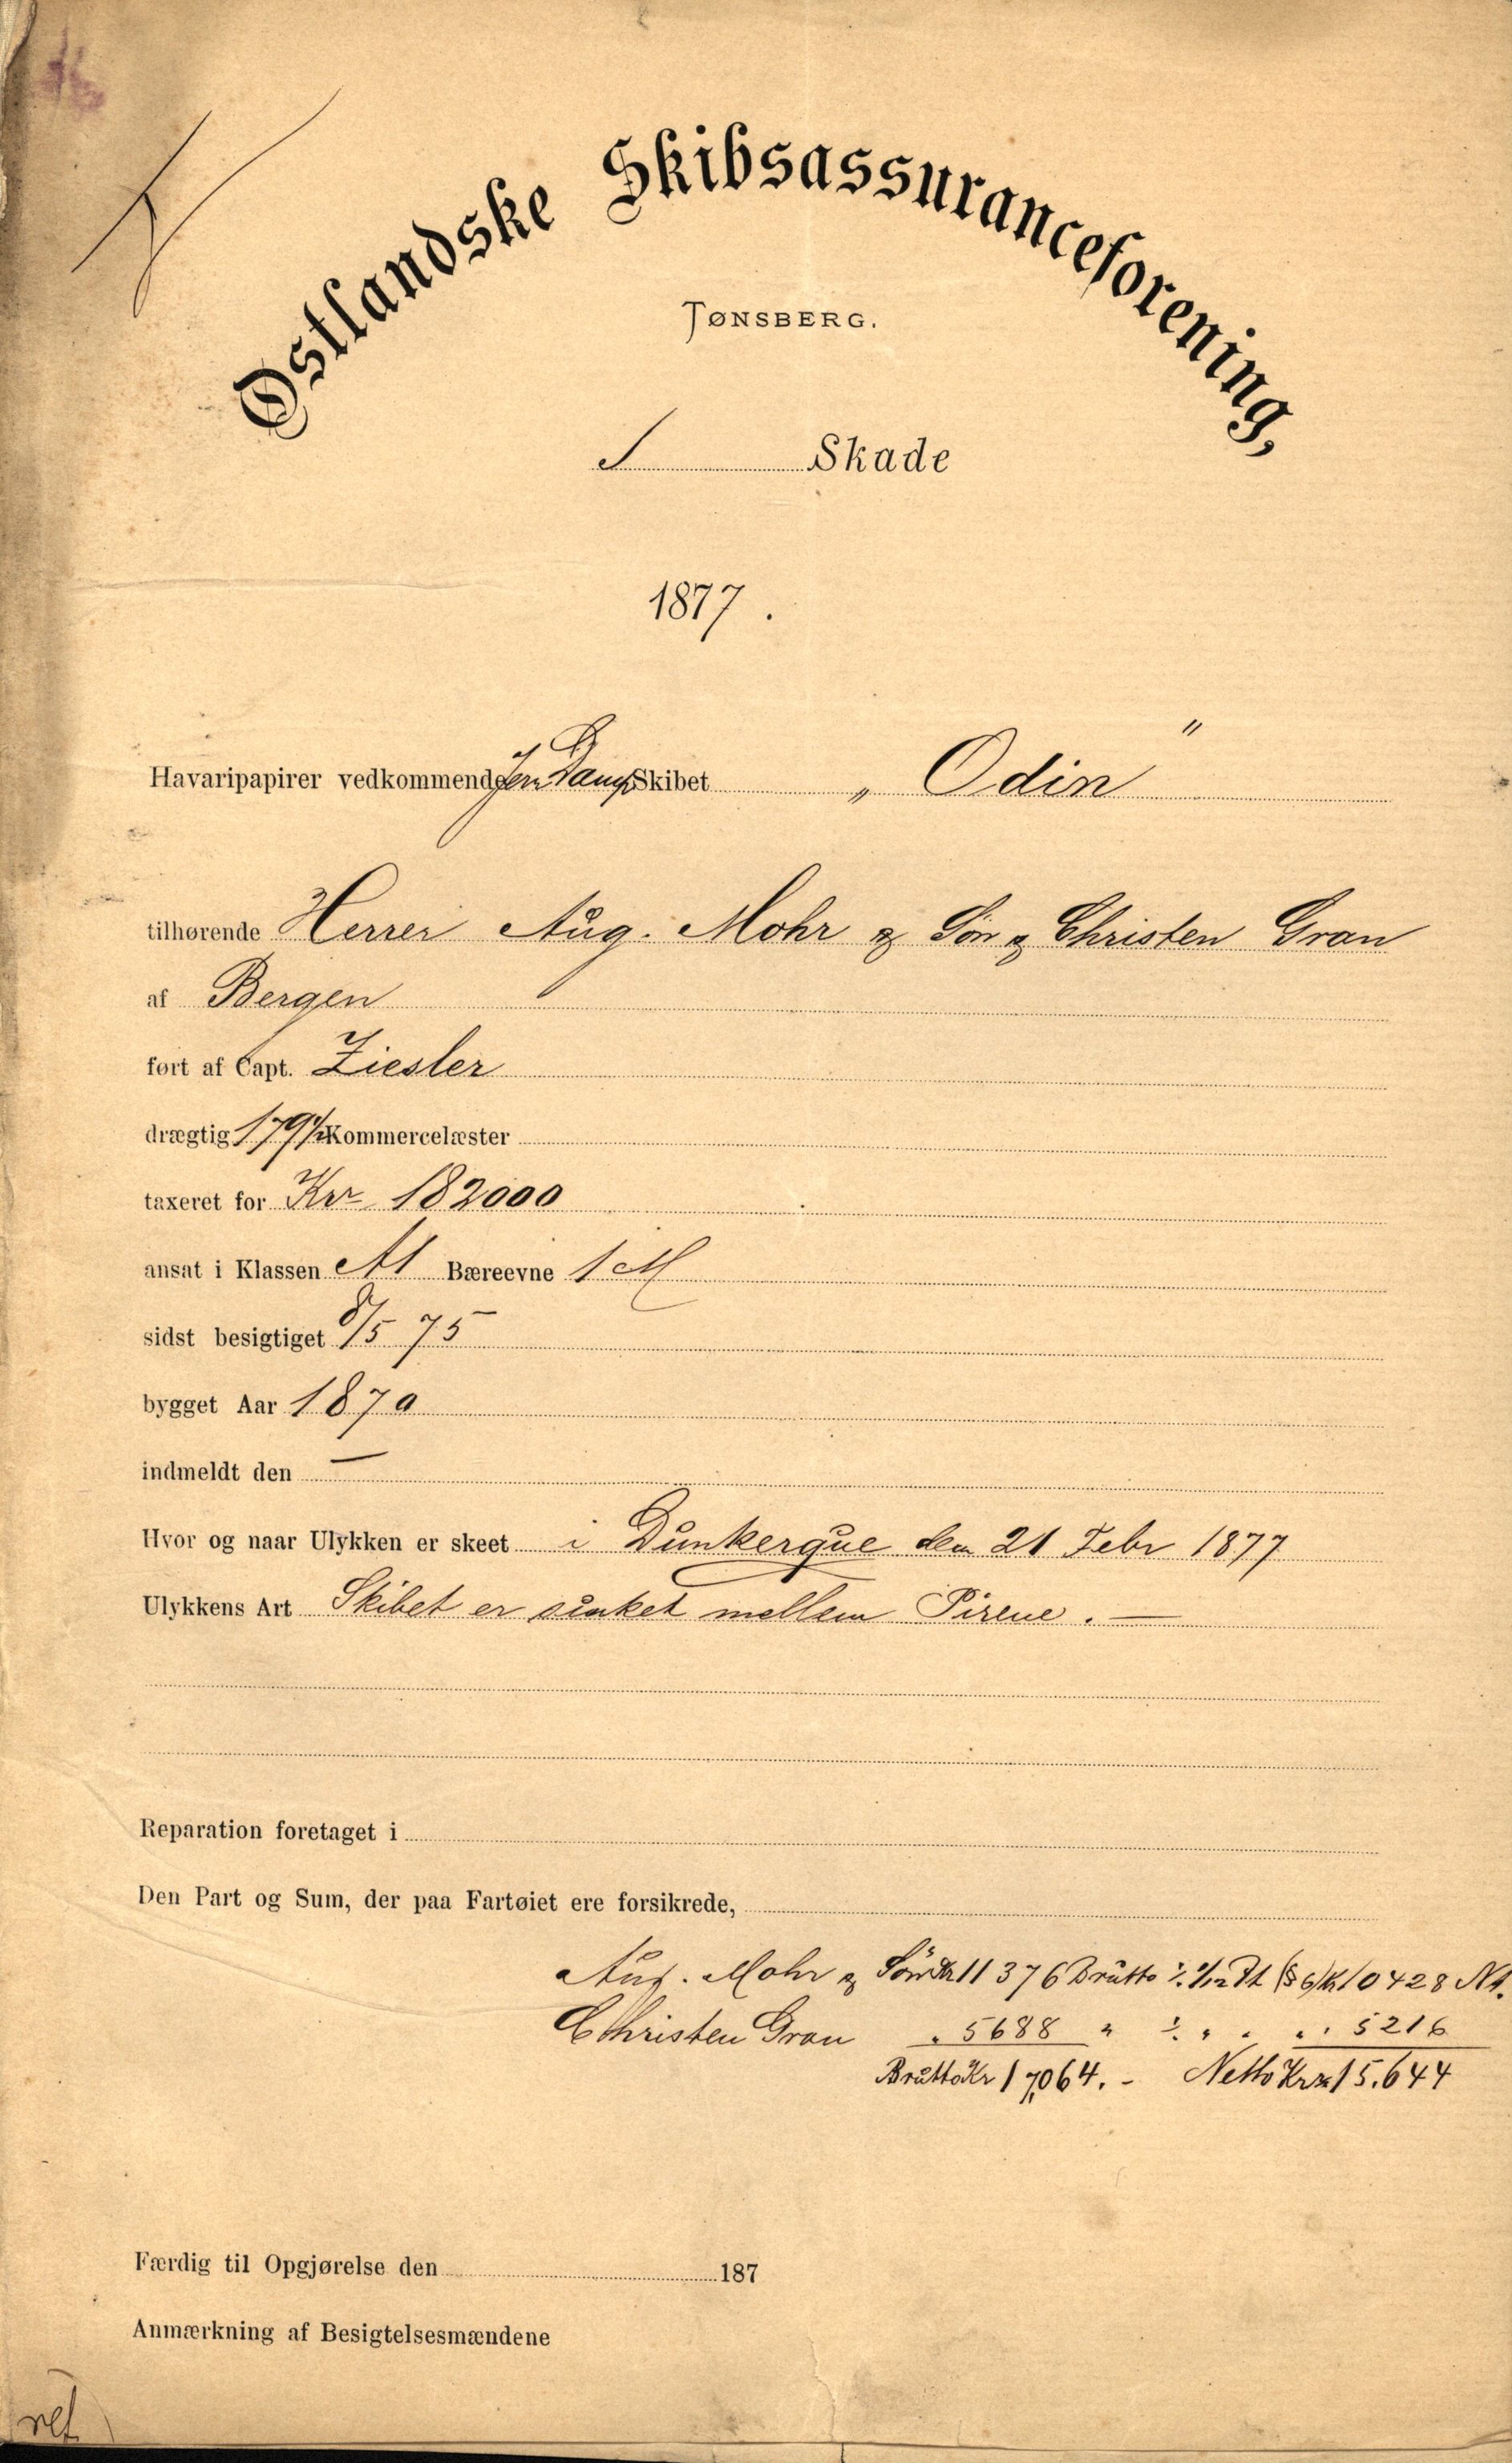 Østlandske Skibsassuranceforening,
TØNSBERG.
S Skade
1877.
Havaripapirer vedkommende Jern Damp Skibet „Odin"
tilhørende Herrer Aug. Mohr & Søn & Christen Gran
af Bergen
ført af Capt. Ziesler
drægtig 179 1/2 Kommercelæster
taxeret for Kr 182000
ansat i Klassen A1 Bæreevne 1 M
sidst besigtiget 8/5 75
bygget Aar 1870
indmeldt den —
Hvor og naar Ulykken er skeet i Dunkerque den 21 Febr 1877
Ulykkens Art Skibet er sunket mellem Pirene. —
Reparation foretaget i
Den Part og Sum, der paa Fartøiet ere forsikrede,
Aug. Mohr & Søn Kr 11376 Brutto ÷ 1/12 (§ 6) Kr 10428 Nt.
Christen Gran " 5688 " ÷ " " " " 5216
Brutto Kr 17,064. - Netto Kr 15.644
Færdig til Opgjørelse den 187
Anmærkning af Besigtelsesmændene